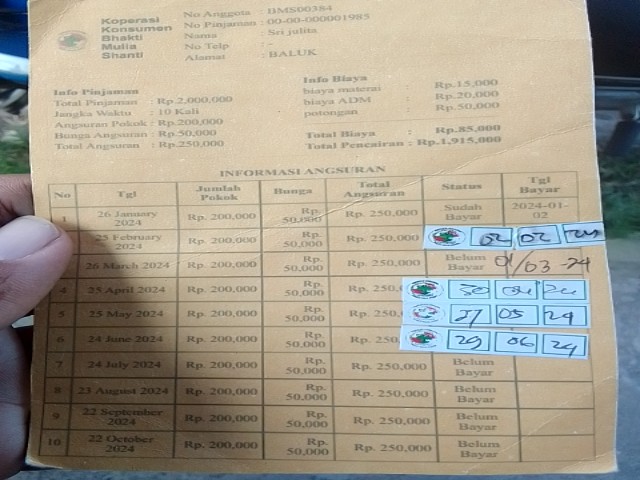 Koperasi
Konsumen
Bhakti
Mulia
Shanti
No Anggota : BMS00384
No Pinjaman : 00-00-000001985
Nama : Sri julita
No Telp : -
Alamat : BALUK
Info Pinjaman
Total Pinjaman : Rp.2,000,000
Jangka Waktu : 10 Kali
Angsuran Pokok : Rp.200,000
Bunga Angsuran : Rp.50,000
Total Angsuran : Rp.250,000
Info Biaya
biaya materai : Rp.15,000
biaya ADM : Rp.20,000
potongan Rp.50,000
Total Biaya : Rp.85,000
Total Pencairan : Rp.1,915,000
INFORMASI ANGSURAN
No Tgl Jumlah Pokok Bunga Total Angsuran Status Tgl Bayar
1 26 January 2024 Rp. 200,000 Rp. 50,000 Rp. 250,000 Sudah Bayar 2024-01-02
25 February 2024 Rp. 200,000 Rp. 50,000 Rp. 250,000 02 02 24
26 March 2024 Rp. 200,000 Rp. 50,000 Rp. 250,000 Belum Bayar 01/03-24
4 25 April 2024 Rp. 200,000 Rp. 50,000 Rp. 250, 30 04 24
5 25 May 2024 Rp. 200,000 Rp. 50,000 Rp. 250, 27 05 24
6 24 June 2024 Rp. 200,000 Rp. 50,000 Rp. 250, 29 06 24
7 24 July 2024 Rp. 200,000 Rp. 50,000 Rp. 250,000 Belum Bayar
8 23 August 2024 Rp. 200,000 Rp. 50,000 Rp. 250,000 Belum Bayar
9 22 September 2024 Rp. 200,000 Rp. 50,000 Rp. 250,000 Belum Bayar
10 22 October 2024 Rp. 200,000 Rp. 50,000 Rp. 250,000 Belum Bayar